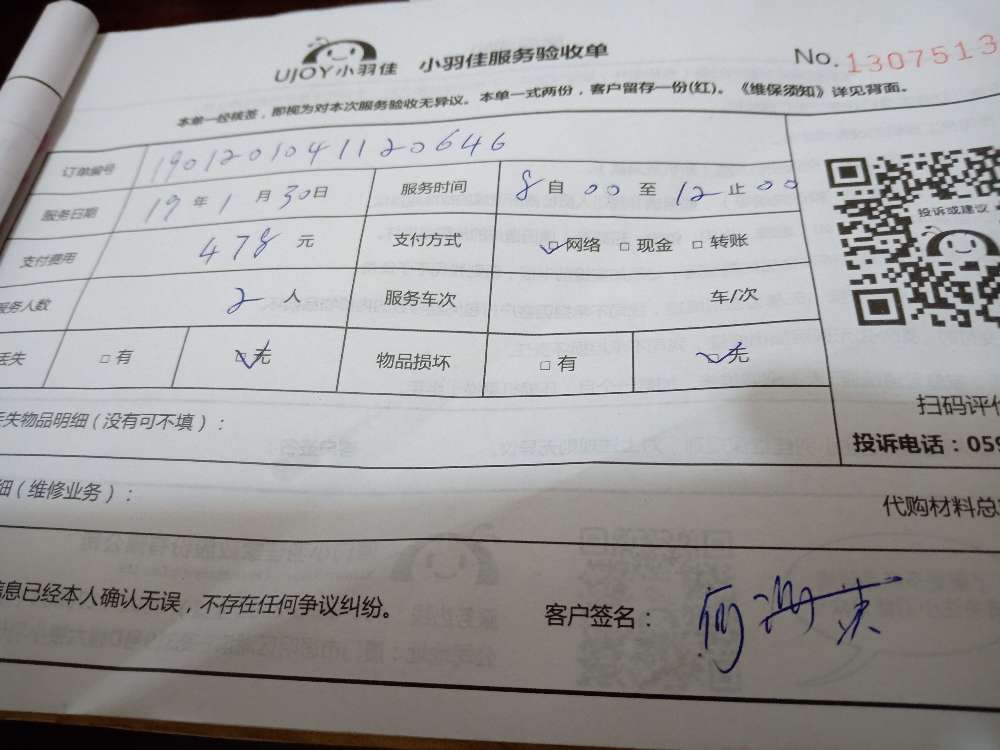 UJOY小羽佳 小羽佳服务验收单 No. 1307513
本单一经核签，即视为对本次服务验收无异议。本单一式两份，客户留存一份(红)。《维保须知》详见背面。
订单编号 1901201041120646
服务日期 19 年 1 月 30 日 服务时间 8 自 00 至 12 止 00
支付费用 478 元 支付方式 ☑网络 □现金 □转账
服务人数 2 人 服务车次 车/次
丢失 □有 ☑无 物品损坏 □有 ☑无
投诉或建议
扫码评价
投诉电话：059
丢失物品明细（没有可不填）：
细（维修业务）： 代购材料总
信息已经本人确认无误，不存在任何争议纠纷。 客户签名：